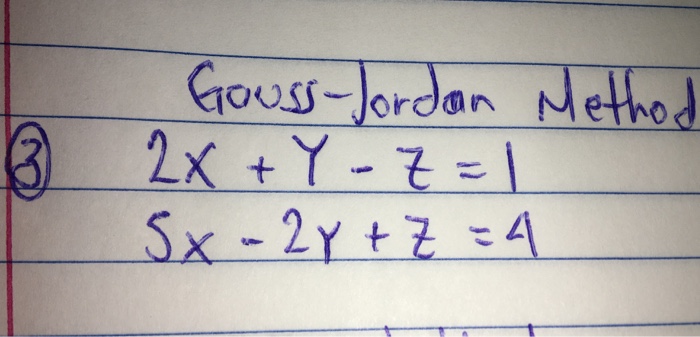 Gauss-Jordan Method
3 2X + Y - Z = 1
5x - 2Y + Z = 4